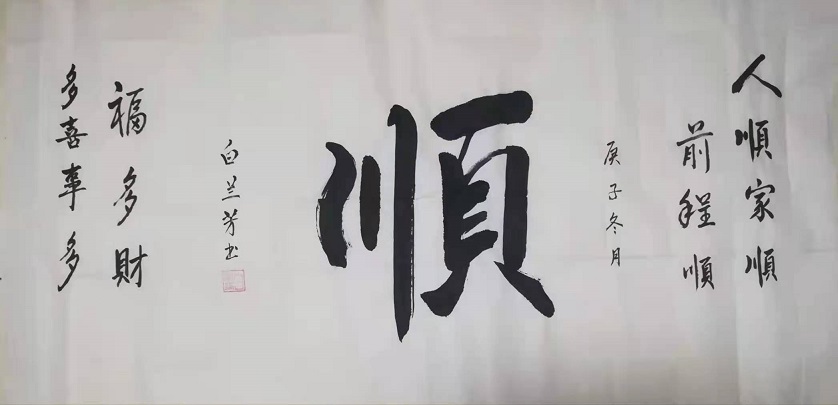 人順家順
前程順
庚子冬月
順
白兰芳书
福多財
多喜事多